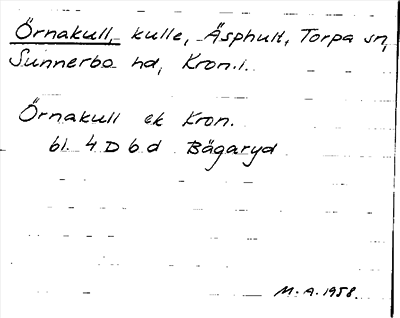 Örnakull, kulle, Äsphult, Torpa sn,
Sunnerbo hd, Kron. l.
Örnakull ek Kron.
bl. 4 D 6 d Bägaryd
M. A. 1958.